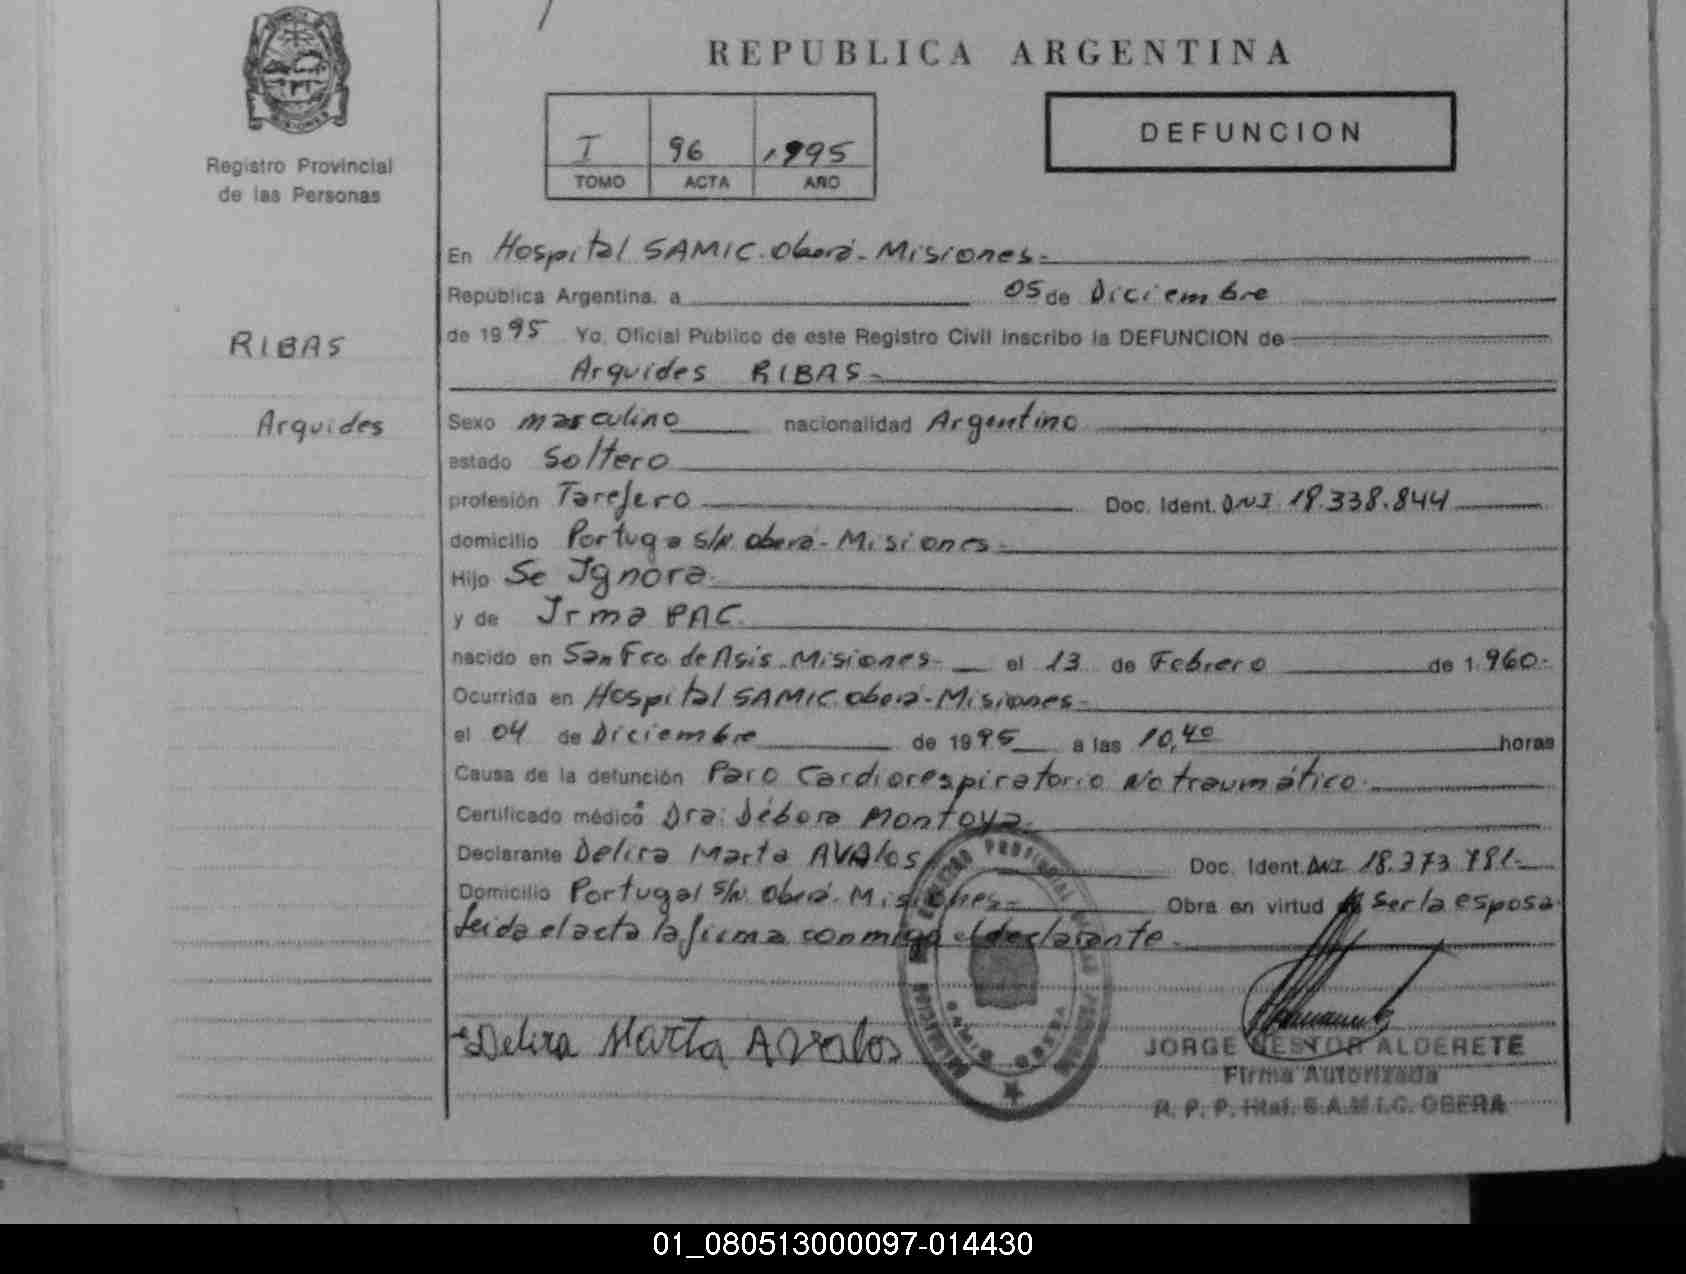 REPUBLICA ARGENTINA
MISIONES
Registro Provincial
de las Personas
I 96 1995
TOMO ACTA AÑO
DEFUNCION
En Hospital SAMIC. Oberá - Misiones.-
República Argentina, a 05 de Diciembre
de 1995 Yo, Oficial Público de este Registro Civil inscribo la DEFUNCION de
Arquides RIBAS.-
RIBAS
Arquides
Sexo masculino nacionalidad Argentino
estado Soltero
profesión Tarefero Doc. Ident. DNI 18.338.844
domicilio Portuga s/N. oberá - Misiones.-
Hijo Se Ignora.
y de Irma PAC.
nacido en San Fco de Asis. Misiones.- el 13 de Febrero de 1.960.-
Ocurrida en Hospital SAMIC. oberá - Misiones.-
el 04 de Diciembre de 1995 a las 10,40 horas
Causa de la defunción Paro Cardiorespiratorio No traumático.
Certificado médico Dra: Débora Montoya.
Declarante Delira Marta AVAlos Doc. Ident. DNI 18.373.781.-
Domicilio Portugal s/N. Oberá. Misiones.- Obra en virtud Ser la esposa.
Leida el acta la firma conmigo el declarante.-
Delira Marta Avalos
JORGE NESTOR ALDERETE
Firma Autorizada
R. P. P. Htal. S.A.M.I.C. OBERA
01_080513000097-014430